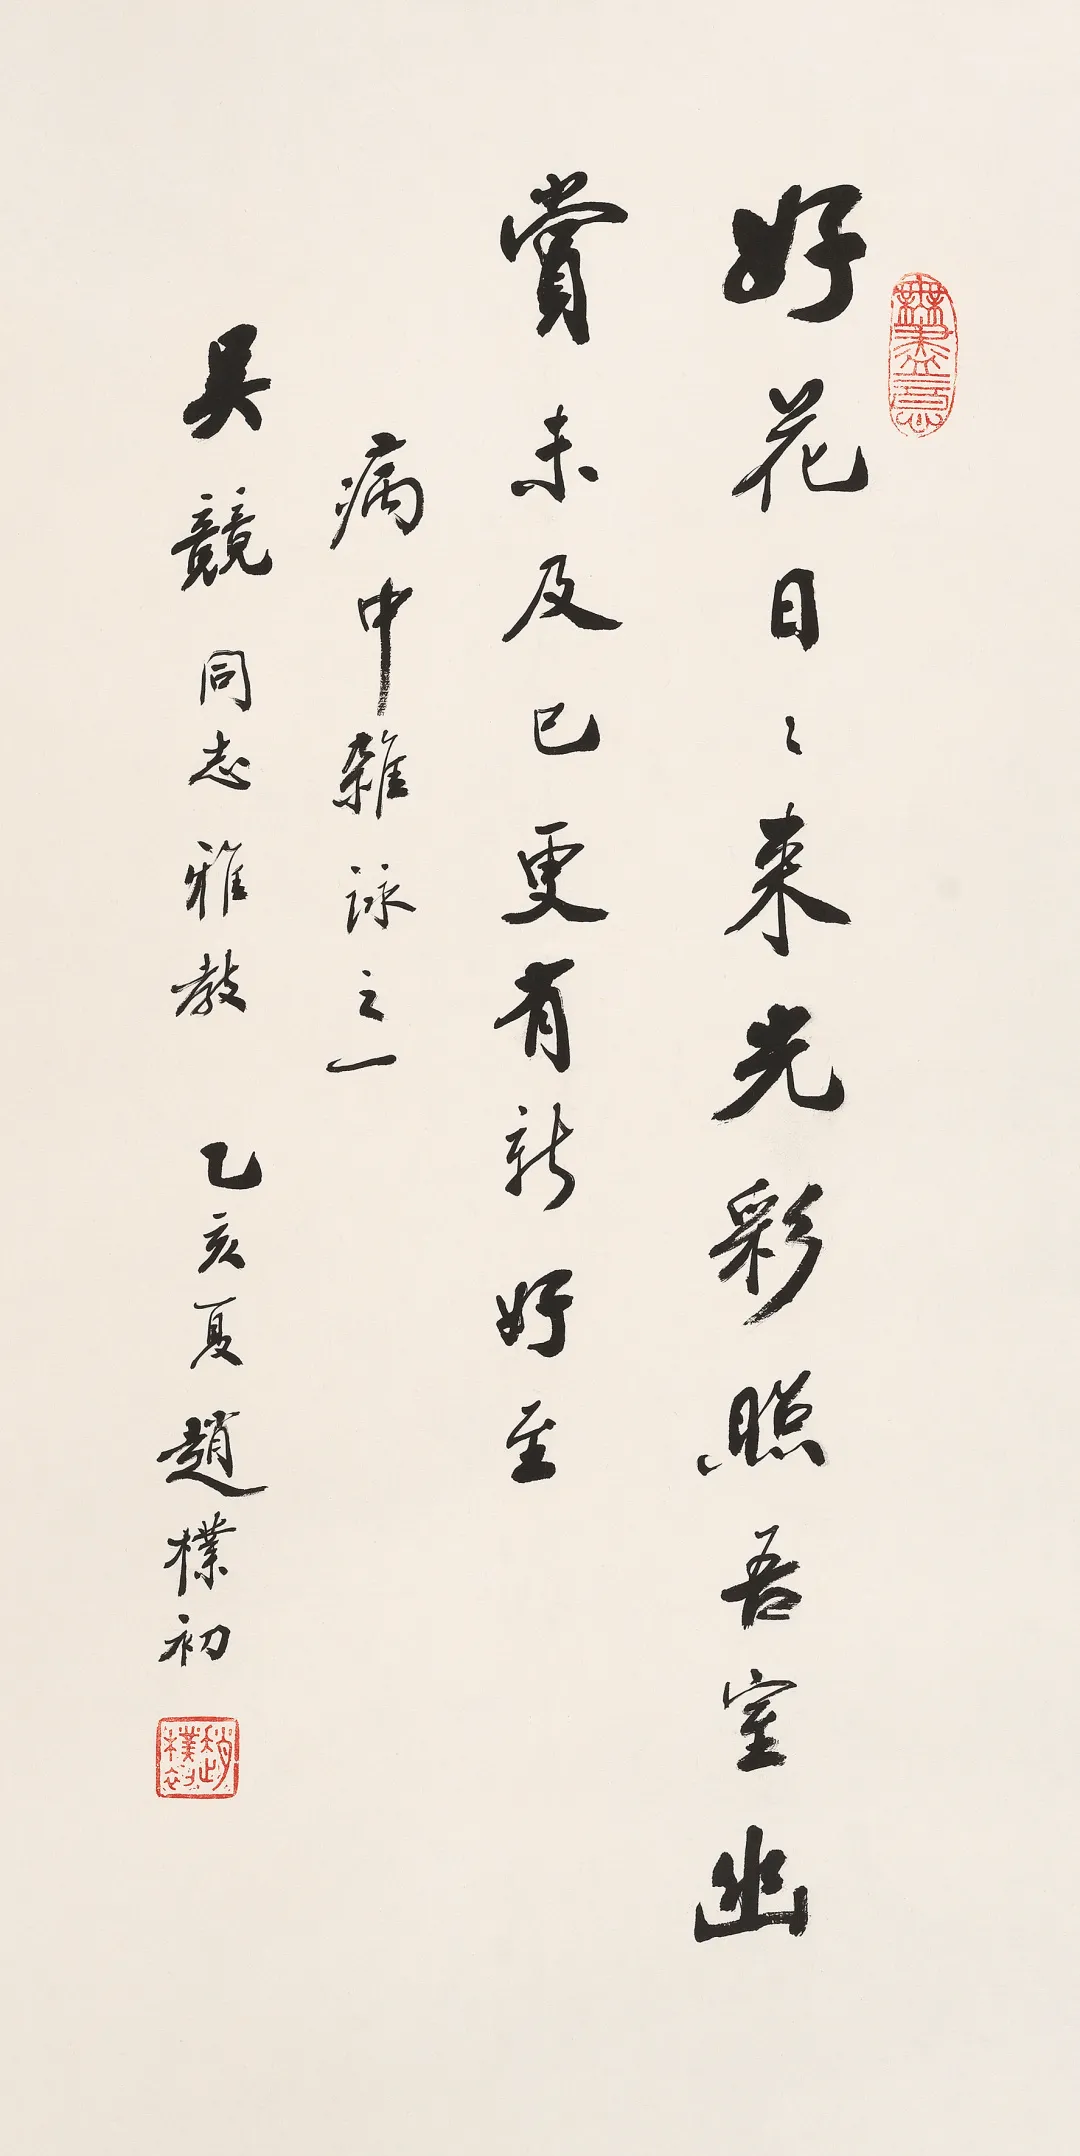 無盡意
好花日〻来光彩照吾室幽
賞未及已更有新好至
病中雜詠之一
吴競同志雅教 乙亥夏趙樸初
趙樸初